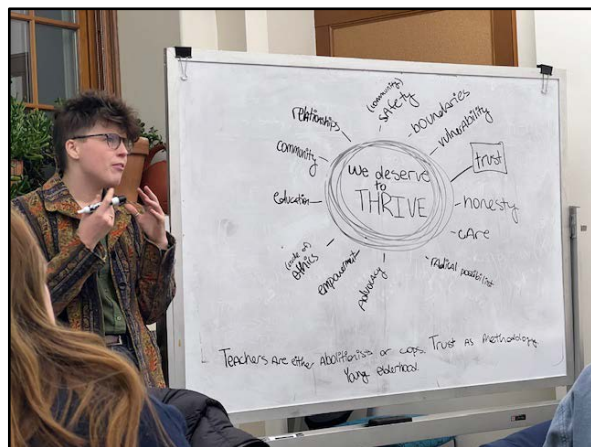 (community)
SAFETY
boundaries
vulnerability
trust
honesty
CARe
radical possibilist
Advocacy
empowerment
(code of)
ethics
education
community
relationships
We deserve
to
THRIVE
Teachers are either Abolitionists or cops. Trust As methodology
Young elderhood.